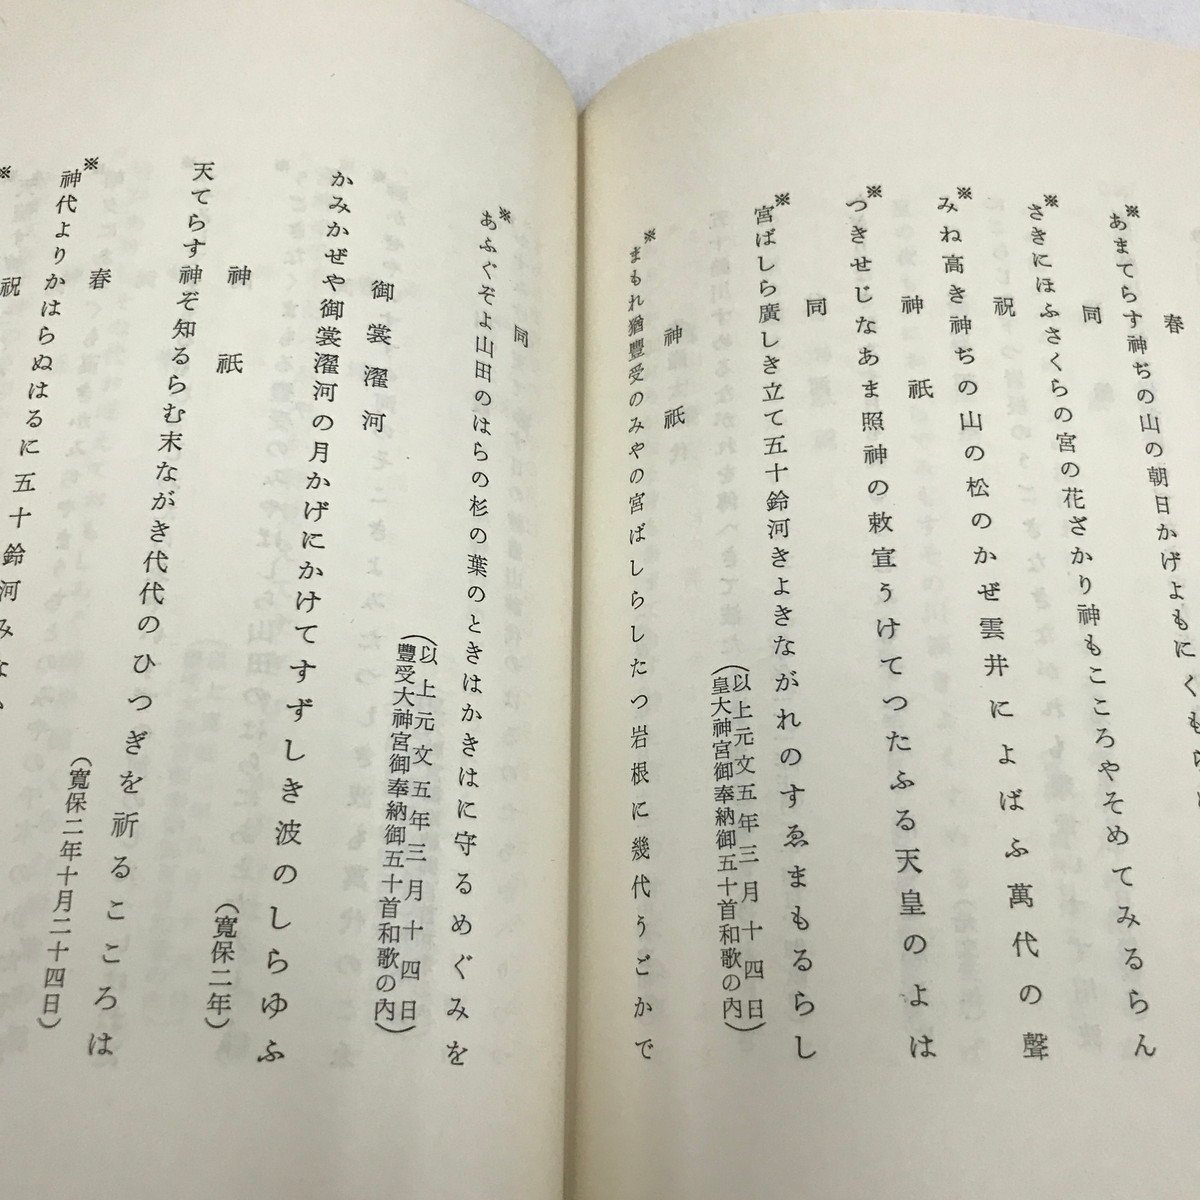 春
※あまてらす神ぢの山の朝日かげよもにくもら
同
※さきにほふさくらの宮の花ざかり神もこころやそめてみるらん
祝
※みね高き神ぢの山の松のかぜ雲井によばふ萬代の聲
神祇
※つきせじなあま照神の敕宣うけてつたふる天皇のよは
同
※宮ばしら廣しき立て五十鈴河きよきながれのすゑまもるらし
(以上元文五年三月十四日
皇大神宮御奉納御五十首和歌の内)
神祇
※まもれ猶豐受のみやの宮ばしらしたつ岩根に幾代うごかで
同
※あふぐぞよ山田のはらの杉の葉のときはかきはに守るめぐみを
(以上元文五年三月十四日
豐受大神宮御奉納御五十首和歌の内)
御裳濯河
かみかぜや御裳濯河の月かげにかけてすずしき波のしらゆふ
(寛保二年)
神祇
天てらす神ぞ知るらむ末ながき代代のひつぎを祈るこころは
(寛保二年十月二十四日)
春
※神代よりかはらぬはるに五十鈴河みな
祝
※